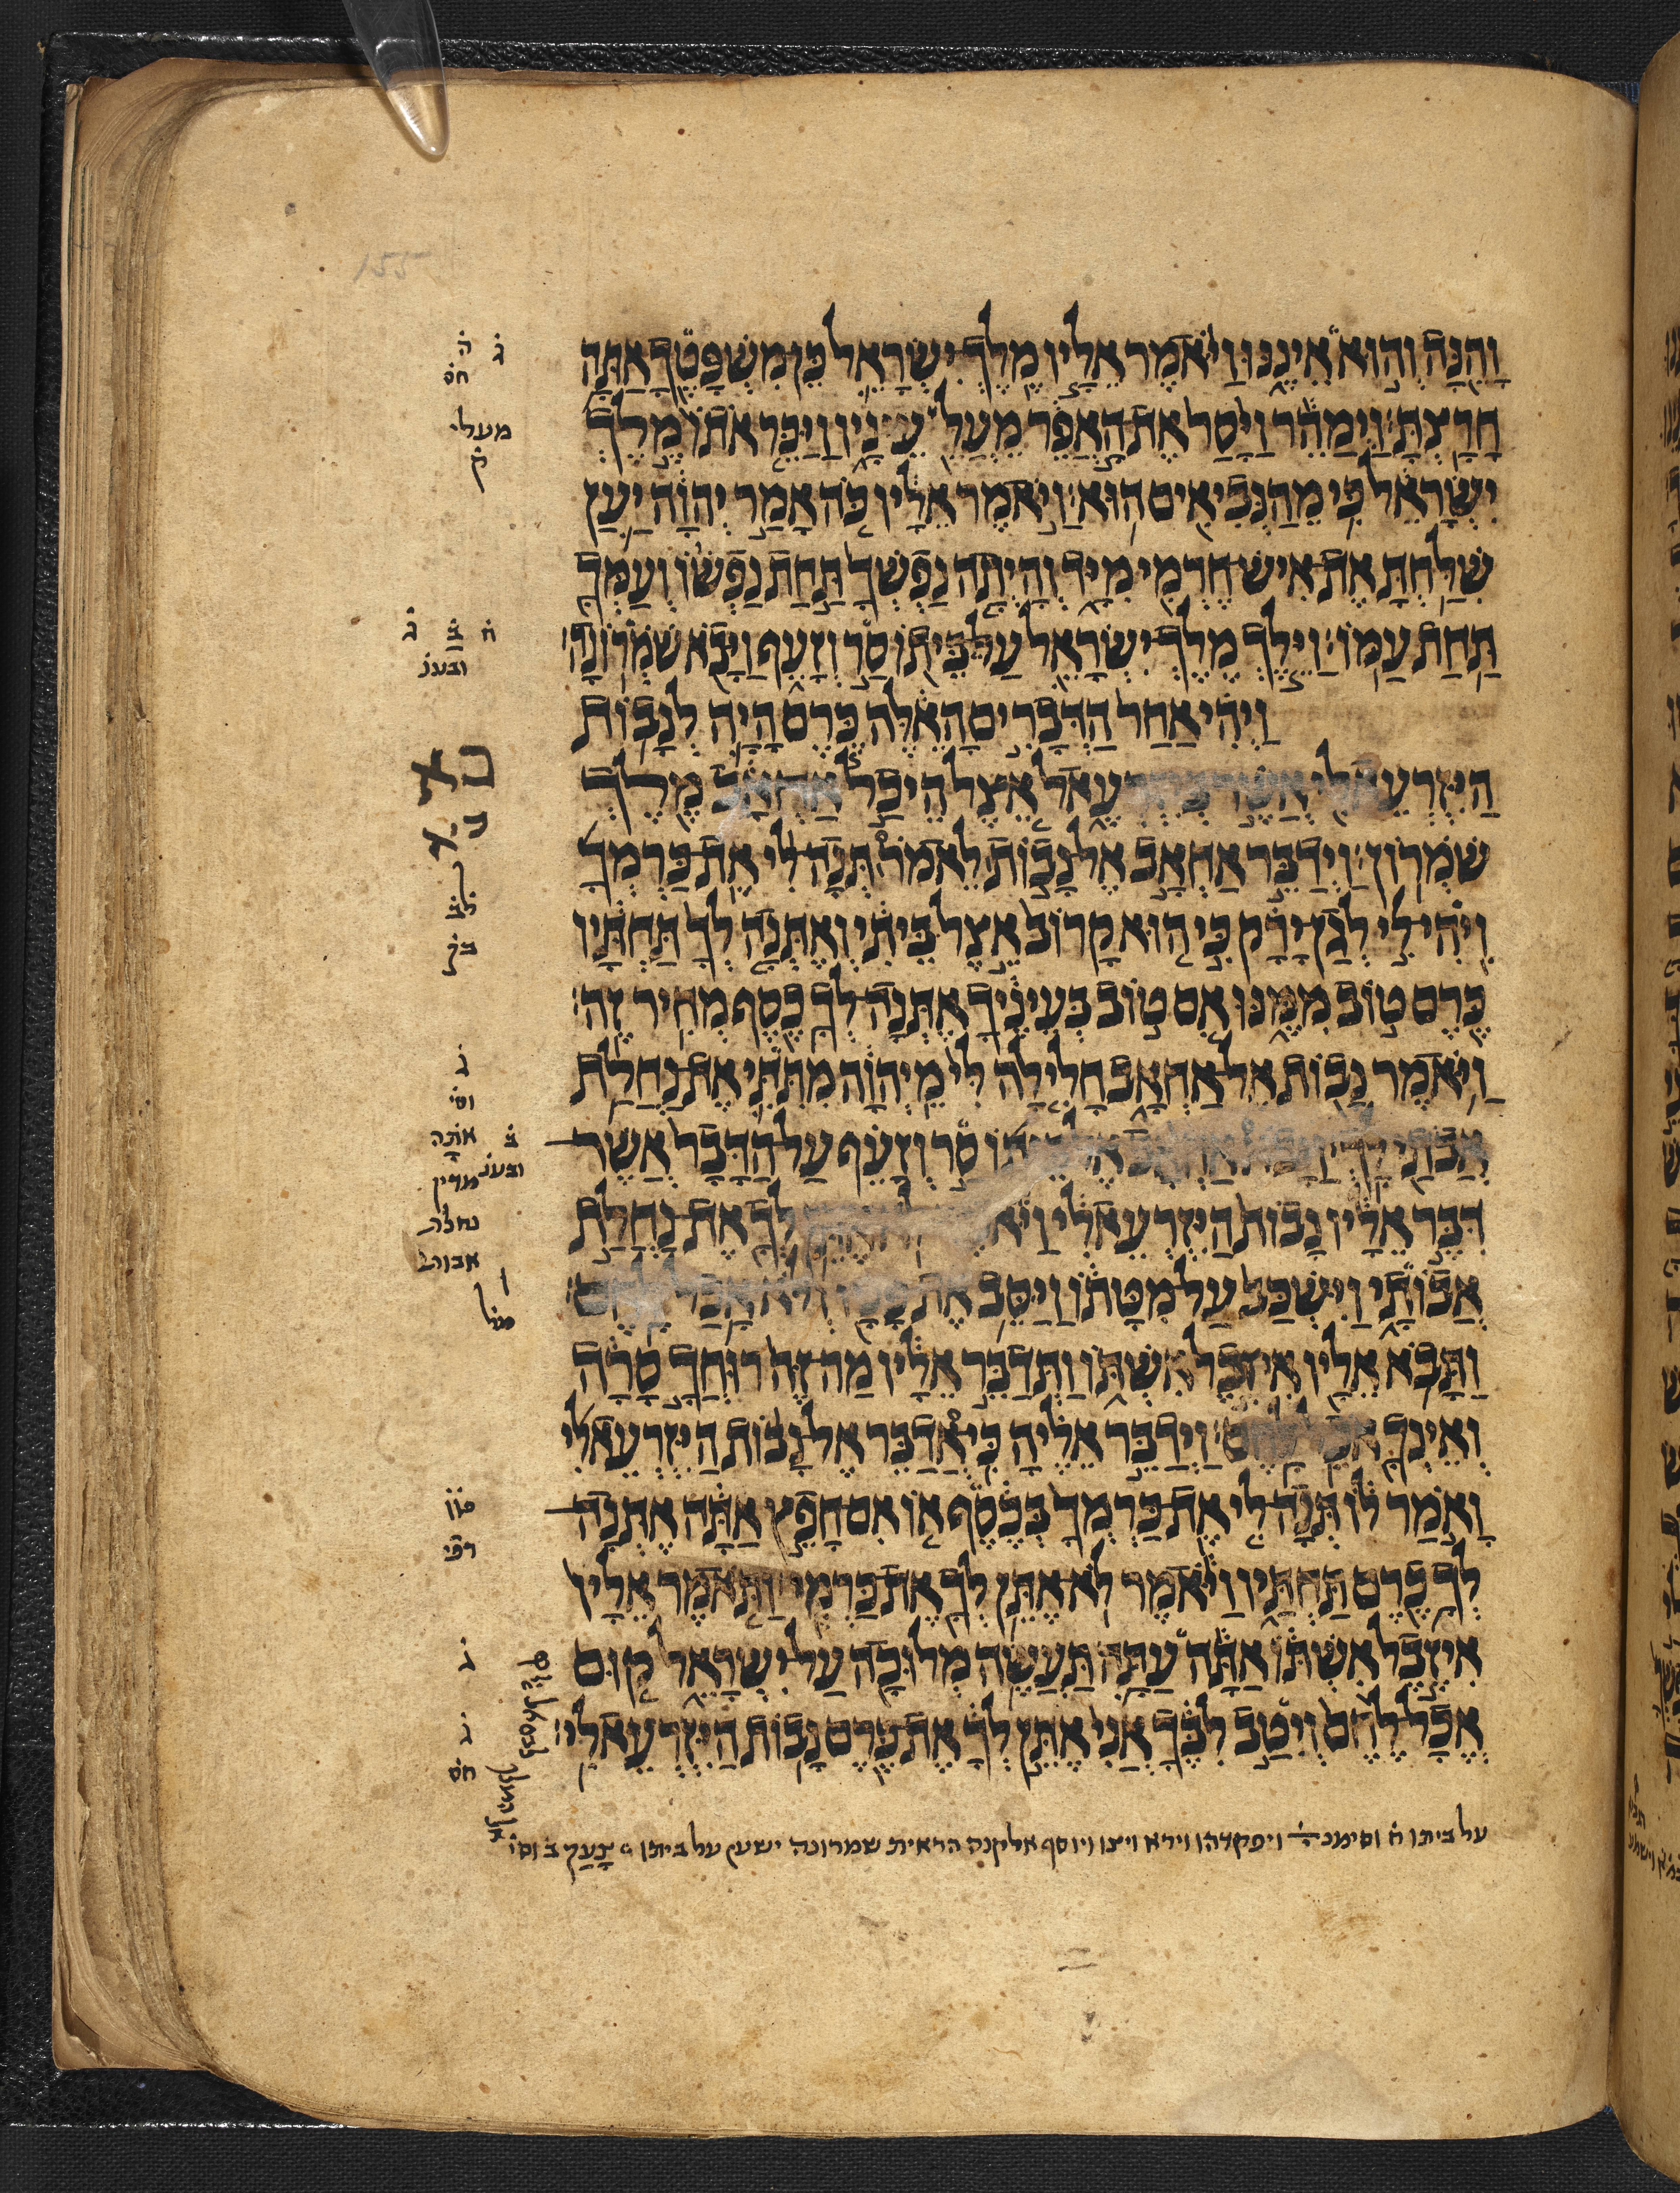 וָהֵנָּה וְהוּא אֵינֶנּוּ וַיֹּאמֶר אֵלָיו מֶלֶךְ יִשְׂרָאֵל כֵּן מִשְׁפָּטֶךָ אַתָּה
חָרָצְתָּ׃ וַיְמַהֵר וַיָּסַר אֶת הָאֲפֵר מֵעֲלֵ עֵינָיו וַיַּכֵּר אֹתוֹ מֶלֶךְ
יִשְׂרָאֵל כִּי מֵהַנְּבִיאִים הוּא׃ וַיֹּאמֶר אֵלָיו כֹּה אָמַר יְהוָה יַעַן
שִׁלַּחְתָּ אֶת אִישׁ חֶרְמִי מִיָּד וְהָיְתָה נַפְשְׁךָ תַּחַת נַפְשׁוֹ וְעַמְּךָ
תַּחַת עַמּוֹ׃ וַיֵּלֶךְ מֶלֶךְ יִשְׂרָאֵל עַל בֵּיתוֹ סַר וְזָעֵף וַיָּבֹא שֹׁמְרוֹנָה׃
וַיְהִי אַחַר הַדְּבָרִים הָאֵלֶּה כֶּרֶם הָיָה לְנָבוֹת
הַיִּזְרְעֵאלִי אֲשֶׁר בְּיִזְרְעֶאל אֵצֶל הֵיכַל אַחְאָב מֶלֶךְ
שֹׁמְרוֹן׃ וַיְדַבֵּר אַחְאָב אֶל נָבוֹת לֵאמֹר תְּנָה לִּי אֶת כַּרְמְךָ
וִיהִי לִי לְגַן יָרָק כִּי הוּא קָרוֹב אֵצֶל בֵּיתִי וְאֶתְּנָה לְךָ תַּחְתָּיו
כֶּרֶם טוֹב מִמֶּנּוּ אִם טוֹב בְּעֵינֶיךָ אֶתְּנָה לְךָ כֶסֶף מְחִיר זֶה׃
וַיֹּאמֶר נָבוֹת אֶל אַחְאָב חָלִילָה לִּי מֵיְהוָה מִתִּתִּי אֶת נַחֲלַת
אֲבֹתַי לָךְ׃ וַיָּבֹא אַחְאָב אֶל בֵּיתוֹ סַר וְזָעֵף עַל הַדָּבָר אֲשֶׁר
דִּבֶּר אֵלָיו נָבוֹת הַיִּזְרְעֵאלִי וַיֹּאמֶר לֹא אֶתֵּן לְךָ אֶת נַחֲלַת
אֲבוֹתָי וַיִּשְׁכַּב עַל מִטָּתוֹ וַיַּסֵּב אֶת פָּנָיו וְלֹא אָכַל לָחֶם׃
וַתָּבֹא אֵלָיו אִיזֶבֶל אִשְׁתּוֹ וַתְּדַבֵּר אֵלָיו מַה זֶּה רוּחֲךָ סָרָה
וְאֵינְךָ אֹכֵל לָחֶם׃ וַיְדַבֵּר אֵלֶיהָ כִּי אֲדַבֵּר אֶל נָבוֹת הַיִּזְרְעֵאלִי
וָאֹמַר לוֹ תְּנָה לִּי אֶת כַּרְמְךָ בְּכֶסֶף אוֹ אִם חָפֵץ אַתָּה אֶתְּנָה
לְךָ כֶרֶם תַּחְתָּיו וַיֹּאמֶר לֹא אֶתֵּן לְךָ אֶת כַּרְמִי׃ וַתֹּאמֶר אֵלָיו
אִיזֶבֶל אִשְׁתּוֹ אַתָּה עַתָּה תַּעֲשֶׂה מְלוּכָה עַל יִשְׂרָאֵל קוּם
אֱכָל לֶחֶם וְיִטַב לִבֶּךָ אֲנִי אֶתֵּן לְךָ אֶת כֶּרֶם נָבוֹת הַיִּזְרְעֵאלִי׃
על ביתו ח וסימנ ויפקדהו וירא ויצו ויוסף אלקנה הראית שמרונה ישעיה על ביתו
ג
ה
חס
מעלי
ק
ח ב ג
ובענ
כא
לב
בק
ג
וס
ב
ובענ
נחלת
אבותי
ג
ג
חס